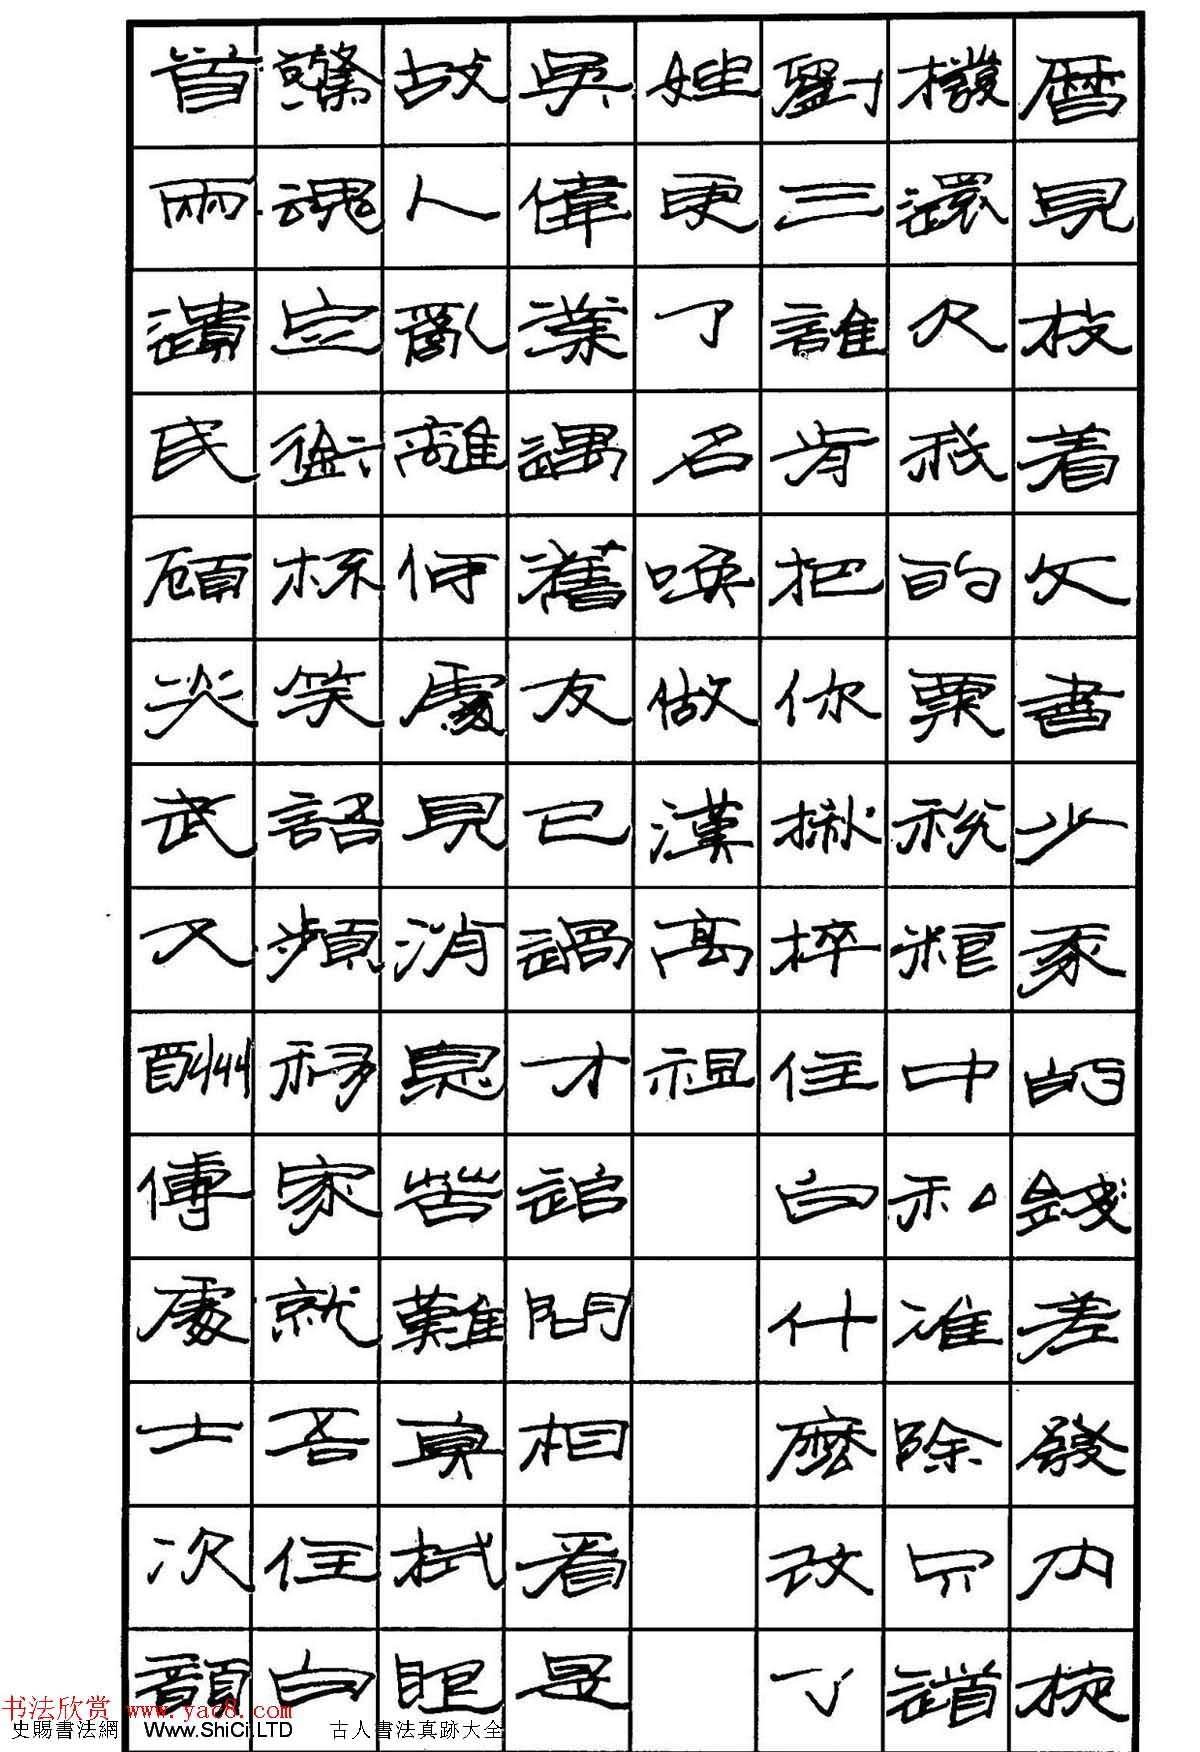 曆見放着文書少我的錢差發內旋
撥還欠我的粟稅糧中私准除只道
劉三誰肯把你揪捽住白什麼改了
姓更了名喚做漢高祖
吳偉業遇舊友已過才追問相看是
故人亂離何處見消息苦難真拭眼
驚魂定銜杯笑語頻移家就吾住白
首兩遺民顧炎武又酬傅處士次韻
书法欣赏 www.yac8.com
史賜書法網 Www.ShiCi.LTD 古人書法真跡大全